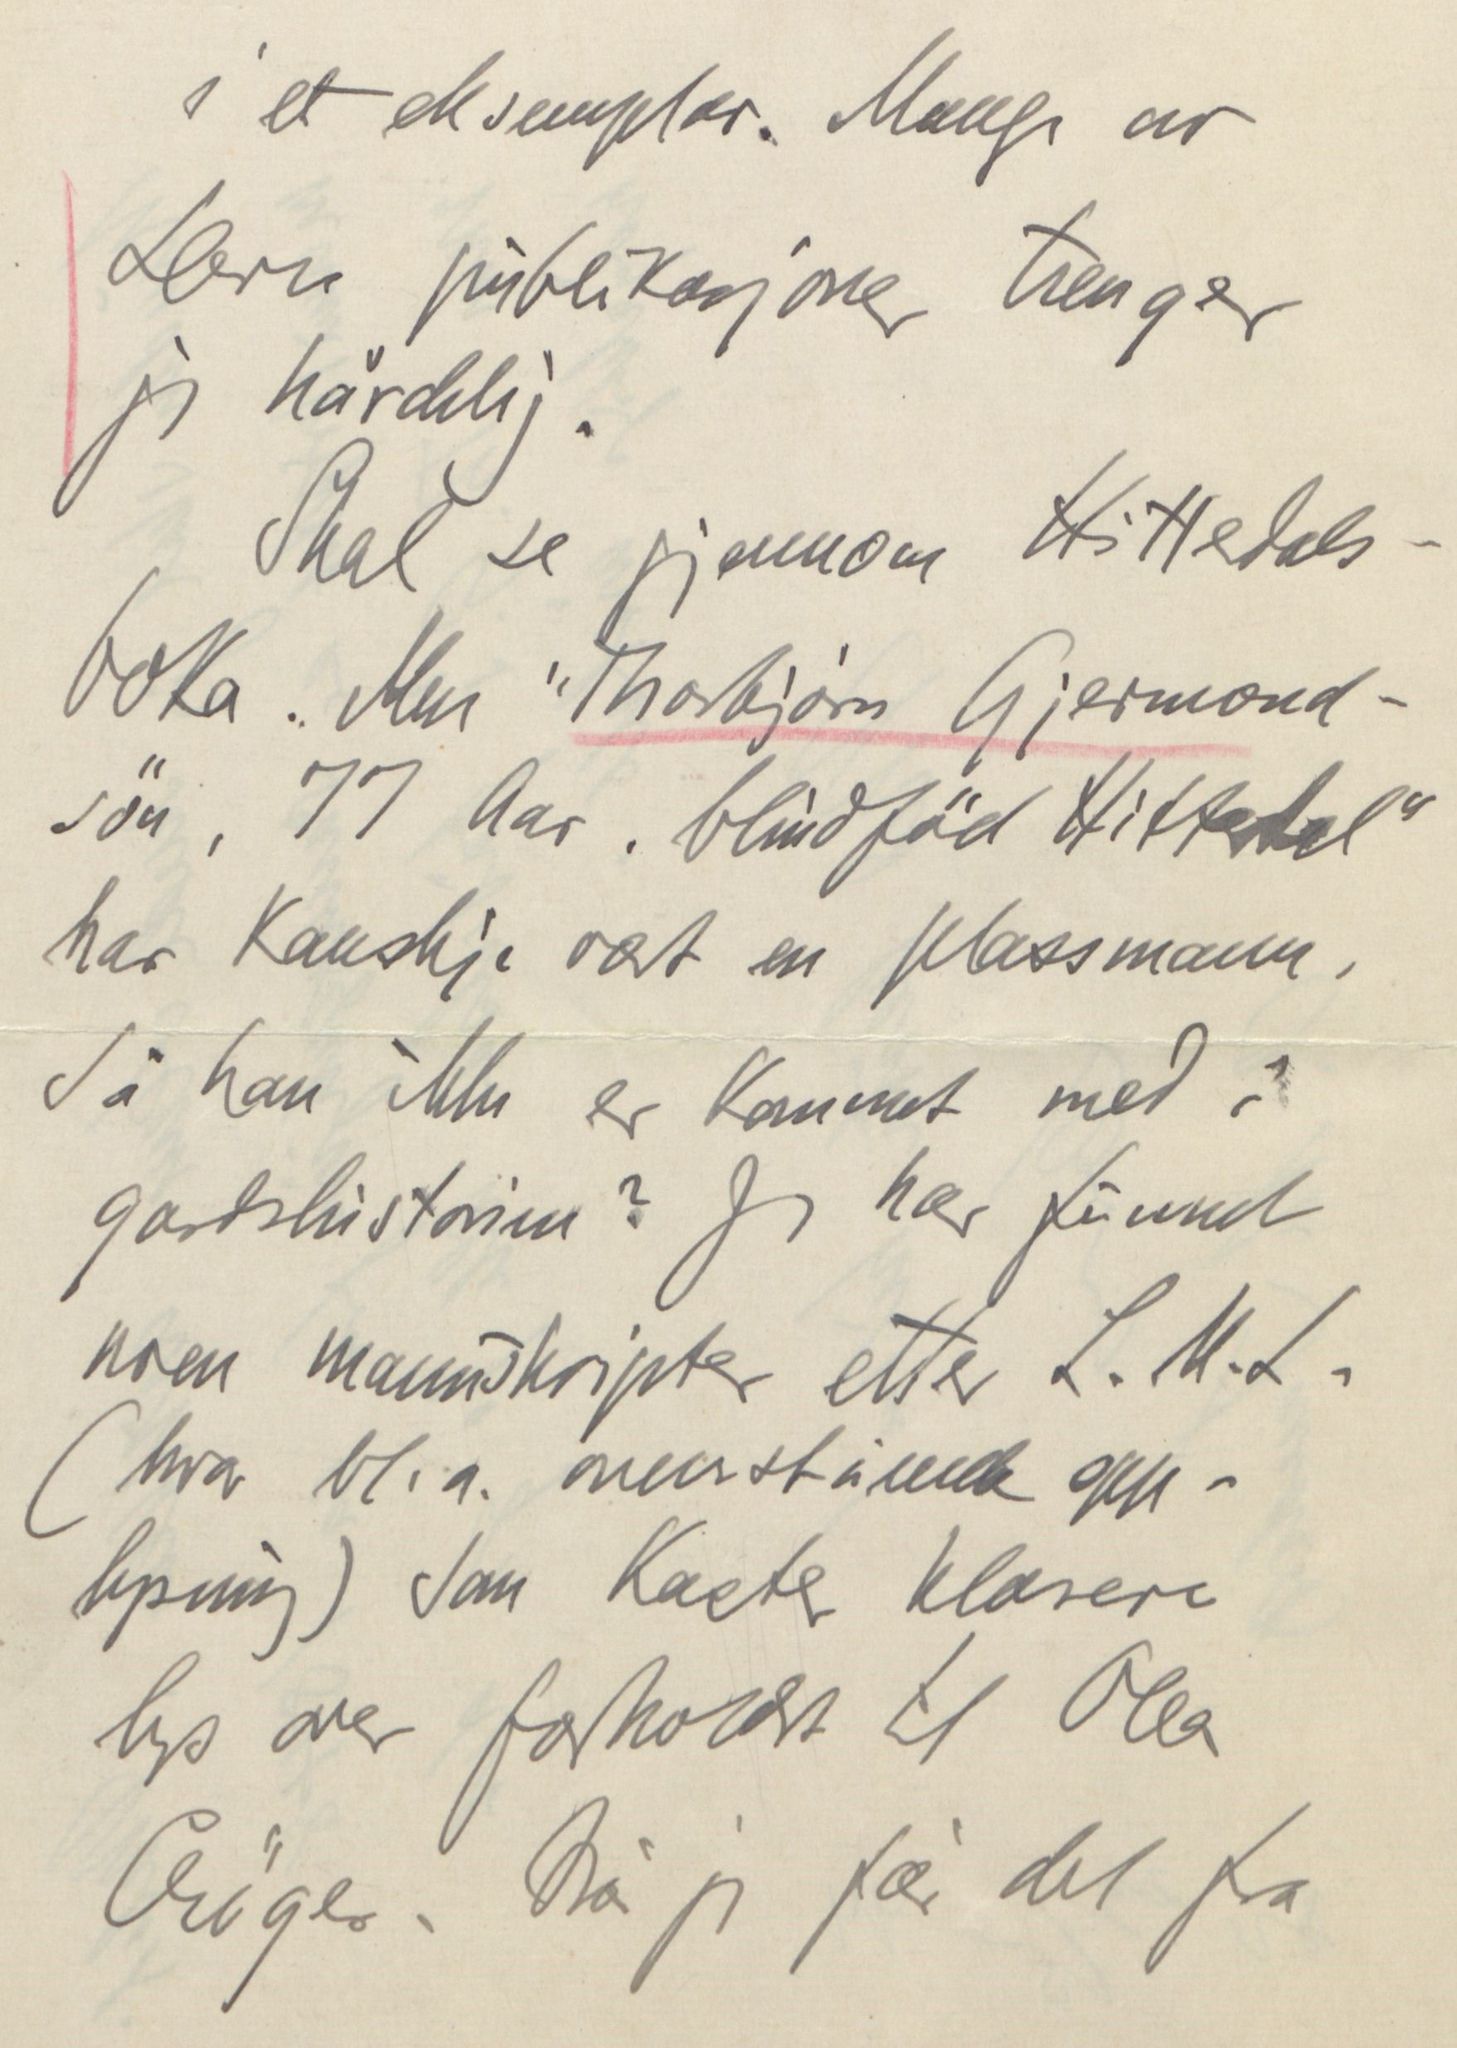 i et eksemplar. Mange av
Deres publikasjoner trenger
jeg hårdelig.
Skal se gjennom Hittedals-
boka. Men "Thorbjörn Gjermond-
sön, 77 Aar. blindföd Hittedal"
har kanskje vært en plassmann,
så han ikke er kommet med i
gardshistorien? Jeg har funnet
noen manuskripter etter L.M.L.
(hvor bl.a. ovenstående opp-
lysning) som kaster klarere
lys over forholdet til Olea
Cröger. Når jeg får det fra